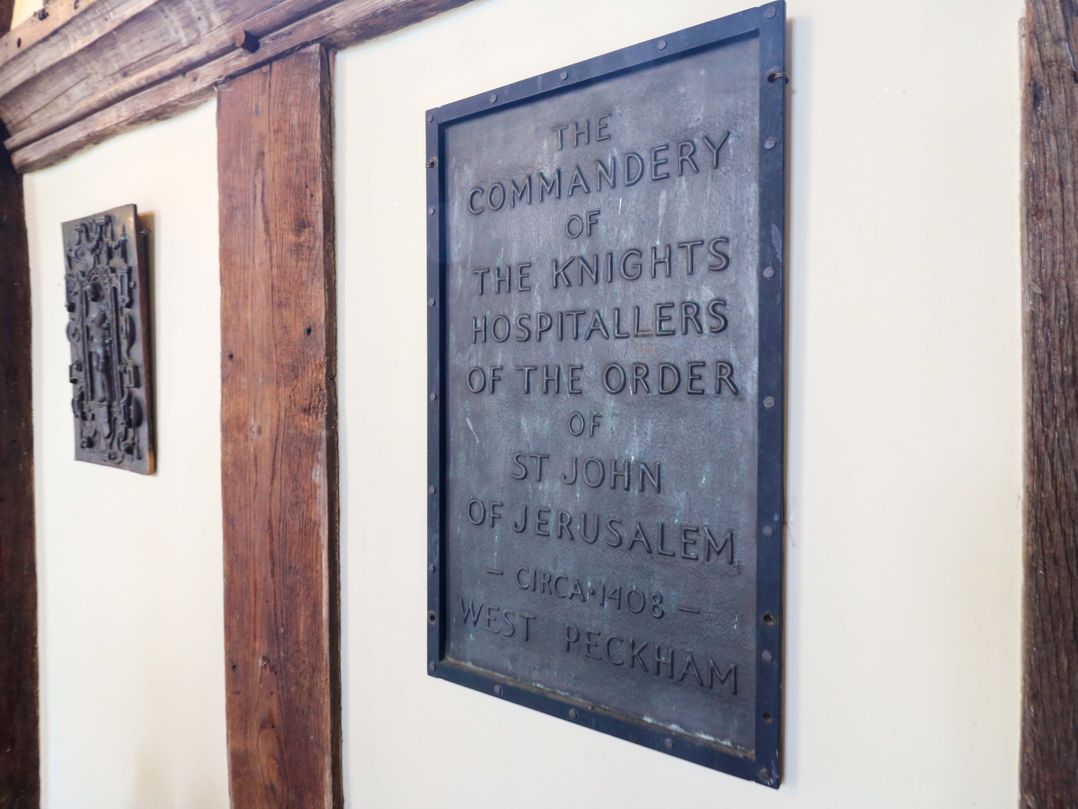 THE
COMMANDERY
OF
THE KNIGHTS
HOSPITALLERS
OF THE ORDER
OF
ST JOHN
OF JERUSALEM
— CIRCA·1408 —
WEST PECKHAM